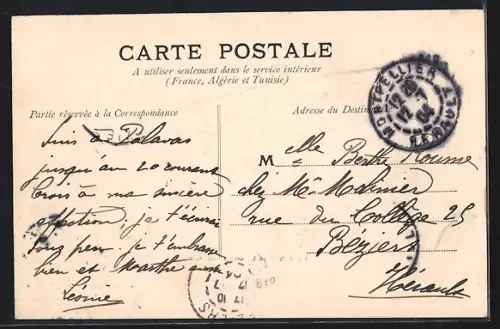 CARTE POSTALE
A utiliser seulement dans le service intérieur
(France, Algérie et Tunisie)
Partie réservée à la Correspondance
Adresse du Destinataire
MONTPELLIER
HERAULT
Suis à Palavas
jusqu'au 20 courant
Crois à ma sincère
affection, je t'écrirai
sous peu. je t'embrasse
bien et Marthe aussi
Léonie
Melle Berthe Rousse
chez Mr Molinier
rue du Collège 25
Béziers
Hérault